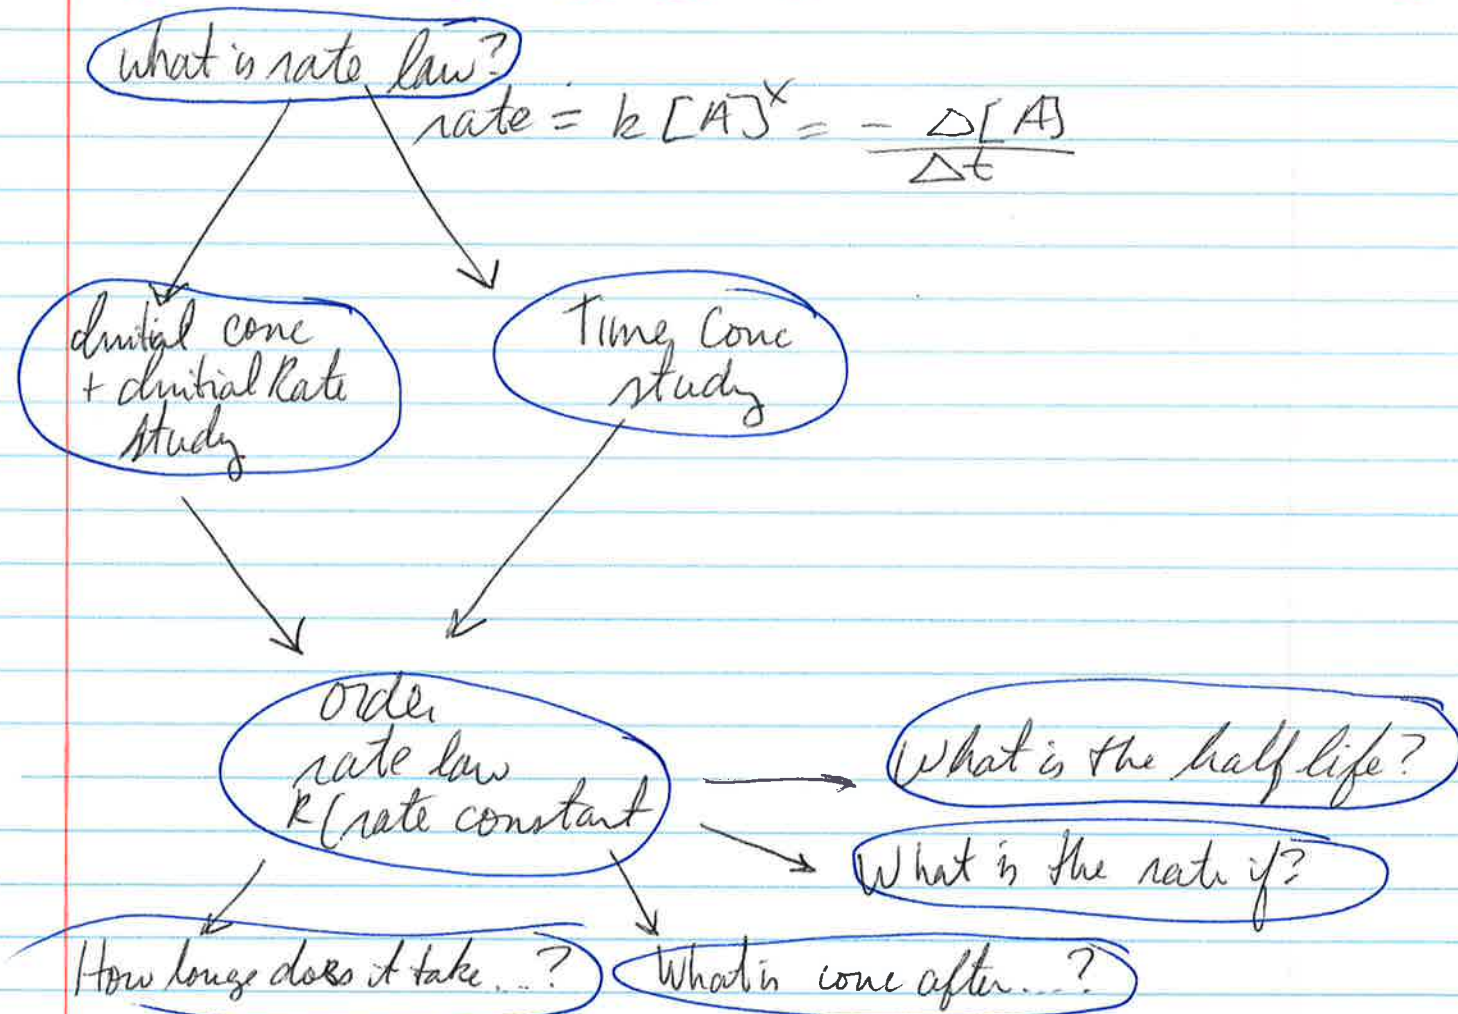 What is rate law?
rate = k [A]^x = - Δ[A]
Δt
Initial conc
+ Initial Rate
study
Time, Conc
study
order
rate law
k (rate constant
What is the half life?
What is the rate if?
How longe does it take...?
What is conc after...?